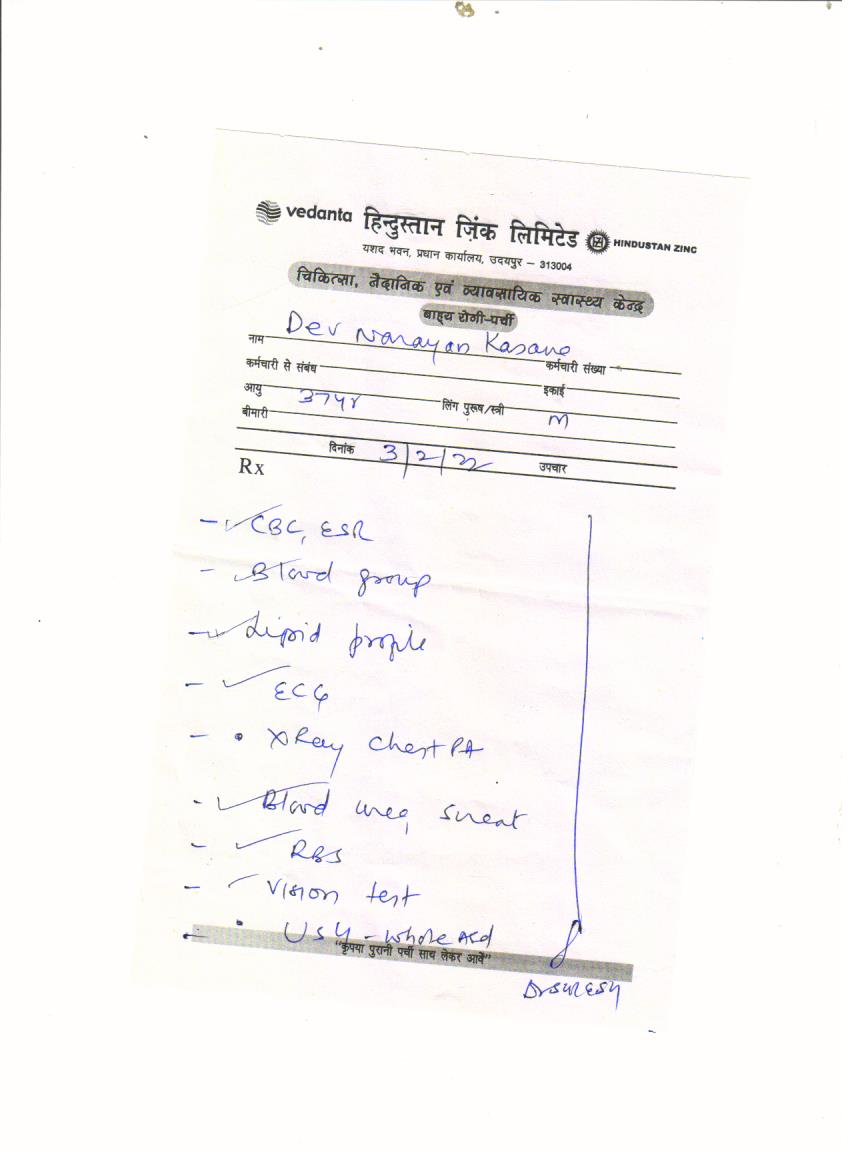 vedanta हिन्दुस्तान ज़िंक लिमिटेड HINDUSTAN ZINC
यशद भवन, प्रधान कार्यालय, उदयपुर – 313004
चिकित्सा, नैदानिक एवं व्यावसायिक स्वास्थ्य केन्द्र
बाह्य रोगी-पर्ची
नाम Dev Narayan Kasane कर्मचारी संख्या
कर्मचारी से संबंध इकाई
आयु 37yr लिंग पुरूष/स्त्री M
बीमारी
दिनांक 3/2/22 उपचार
Rx
- CBC, ESR
- Blood group
- Lipid profile
- ECG
- XRay Chest PA
- Blood urea, Screat
- RBS
- Vision test
- USG - whole Abd
"कृपया पुरानी पर्ची साथ लेकर आवें"
Dr SURESH